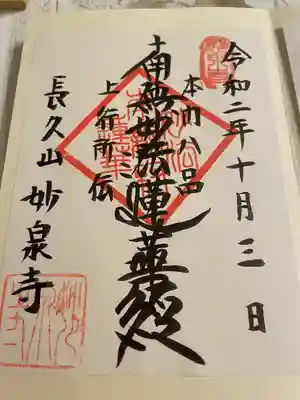 令和二年十月三日
本門八品
南無妙法蓮華経
上行所伝
長久山妙泉寺